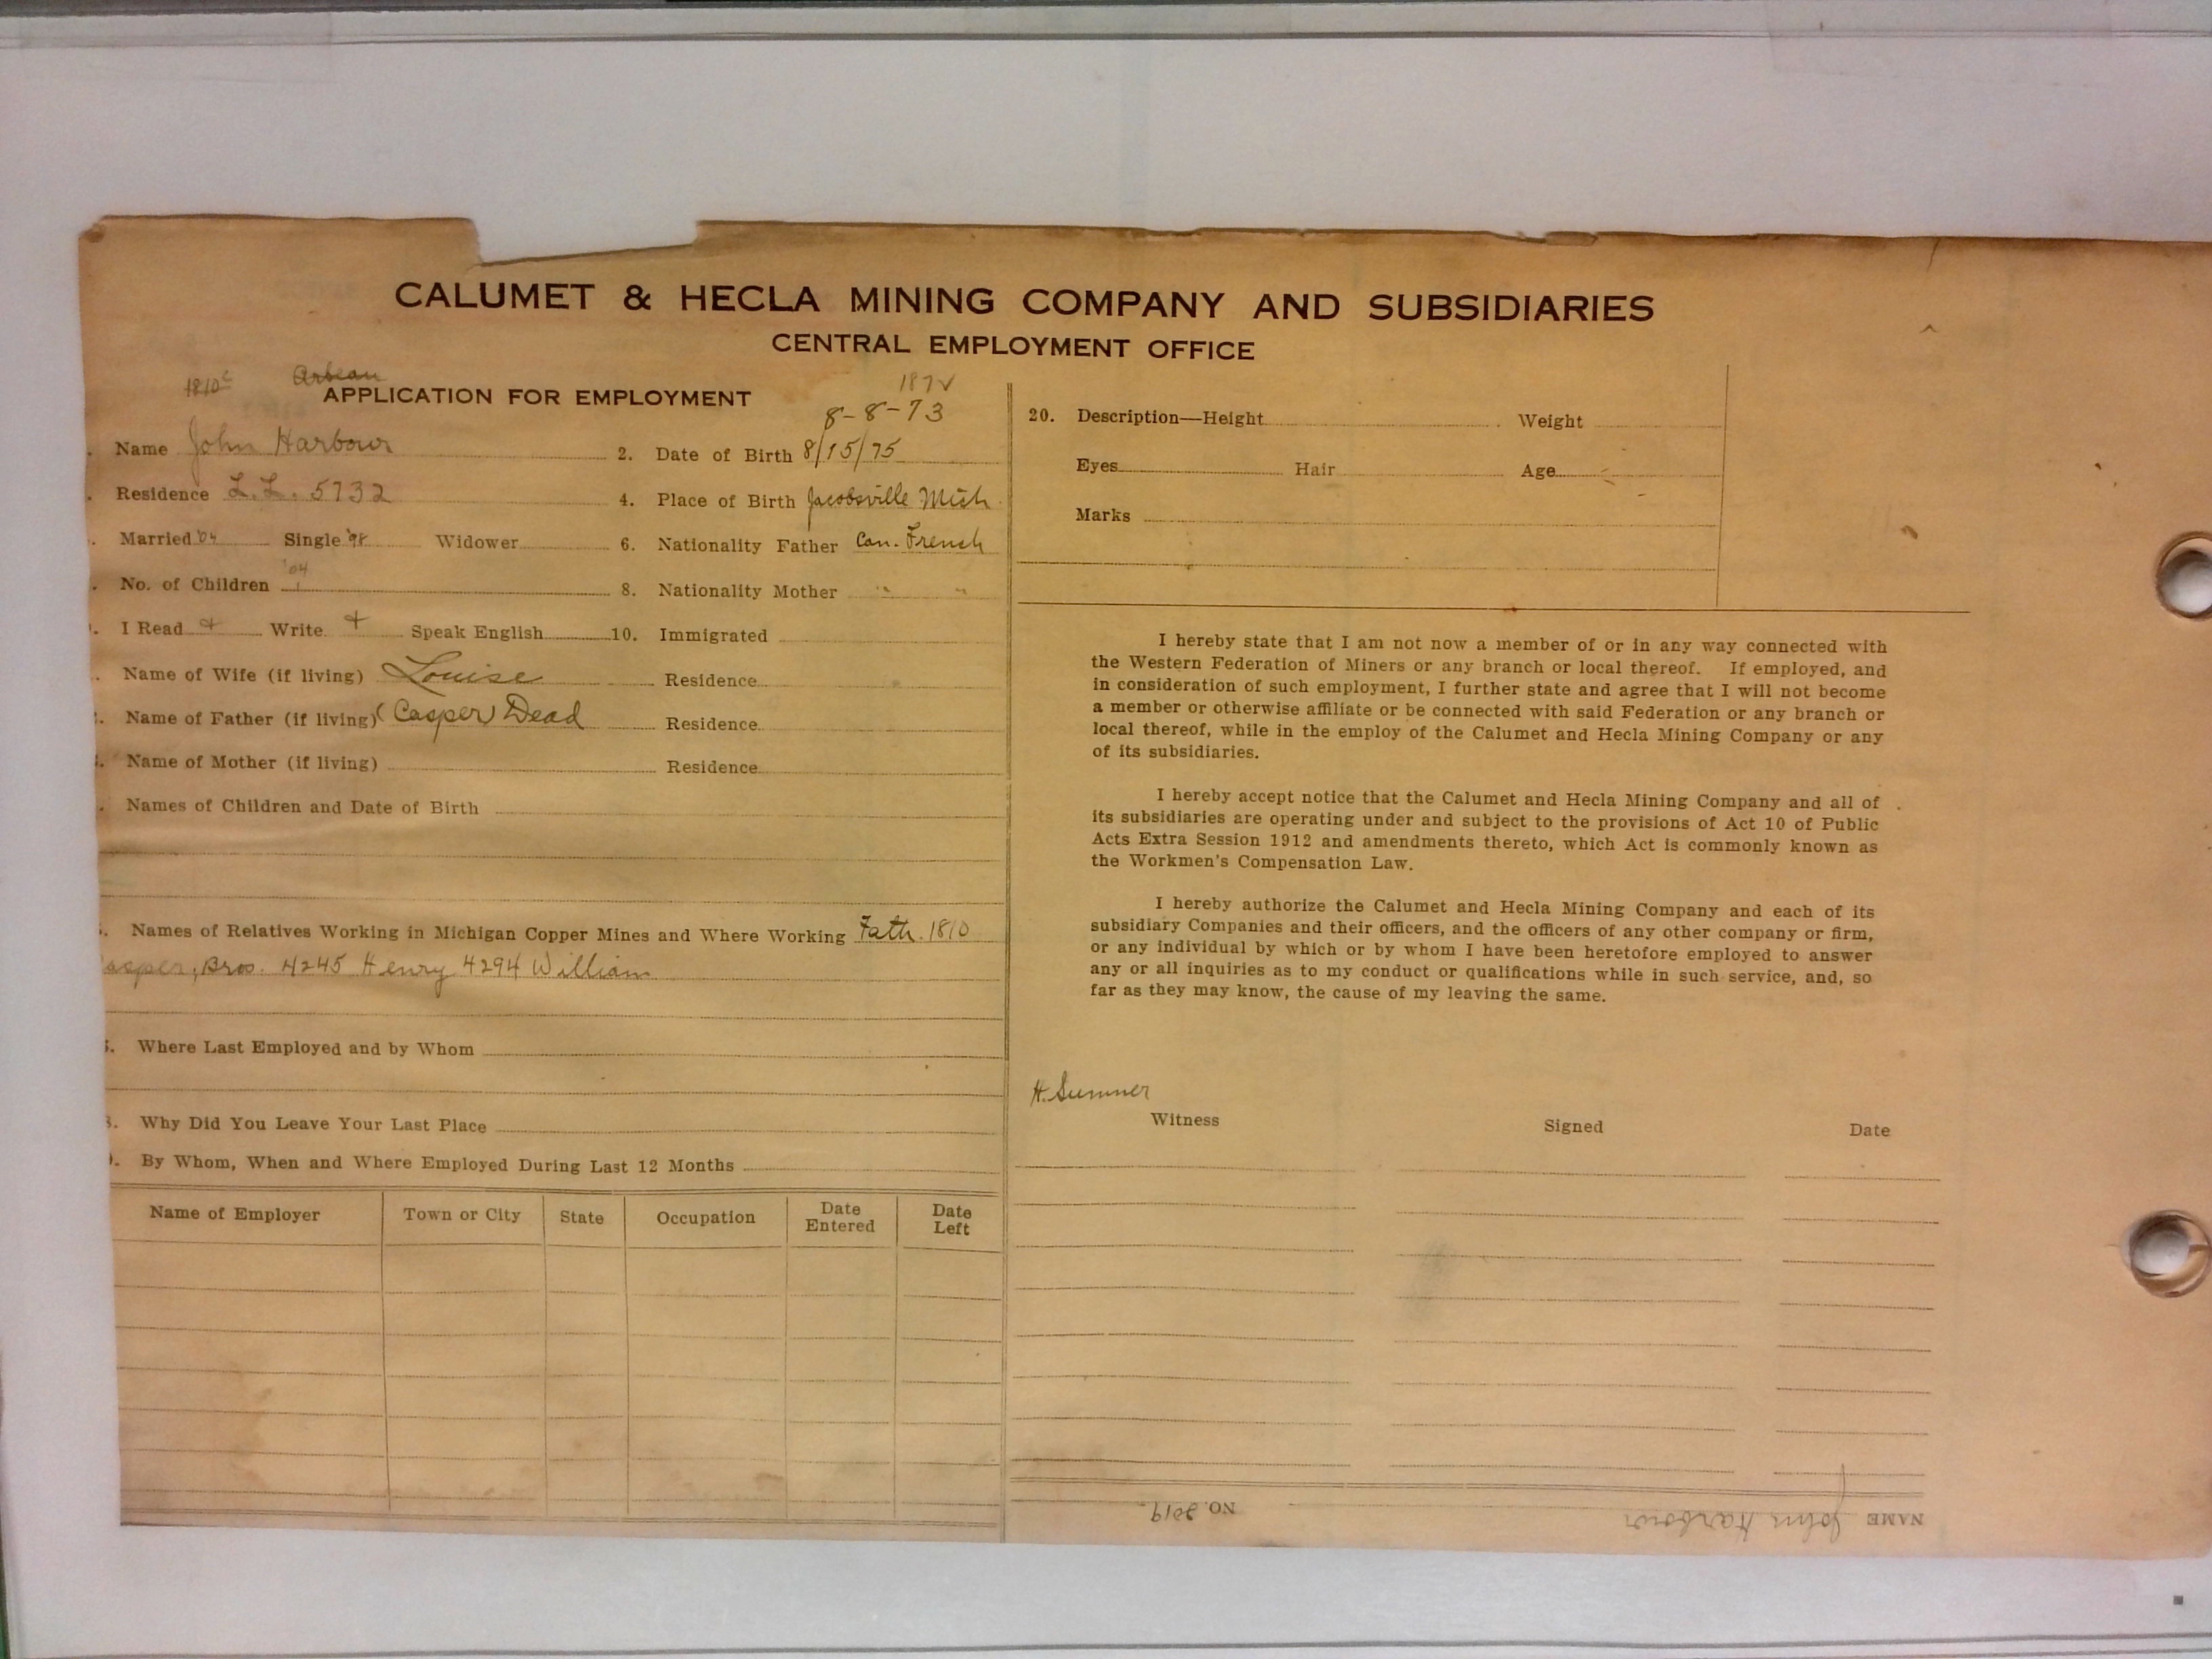 CALUMET & HECLA MINING COMPANY AND SUBSIDIARIES
CENTRAL EMPLOYMENT OFFICE
Arbeau
APPLICATION FOR EMPLOYMENT
187
8-8-73
Name John Harbour
2. Date of Birth 8/15/75
Residence L.L. 5732
4. Place of Birth Jacobsville Mich
Married '04 Single '98 Widower
6. Nationality Father Can. French
'04
No. of Children 1
8. Nationality Mother " "
I Read + Write + Speak English
10. Immigrated
Name of Wife (if living) Louise Residence
Name of Father (if living) (Casper) Dead Residence
Name of Mother (if living) Residence
Names of Children and Date of Birth
Names of Relatives Working in Michigan Copper Mines and Where Working Fath. 1810
asper, Bros. 4245 Henry 4294 William
Where Last Employed and by Whom
Why Did You Leave Your Last Place
By Whom, When and Where Employed During Last 12 Months
Name of Employer Town or City State Occupation Date Entered Date Left
20. Description—Height Weight
Eyes Hair Age
Marks
I hereby state that I am not now a member of or in any way connected with
the Western Federation of Miners or any branch or local thereof. If employed, and
in consideration of such employment, I further state and agree that I will not become
a member or otherwise affiliate or be connected with said Federation or any branch or
local thereof, while in the employ of the Calumet and Hecla Mining Company or any
of its subsidiaries.
I hereby accept notice that the Calumet and Hecla Mining Company and all of
its subsidiaries are operating under and subject to the provisions of Act 10 of Public
Acts Extra Session 1912 and amendments thereto, which Act is commonly known as
the Workmen's Compensation Law.
I hereby authorize the Calumet and Hecla Mining Company and each of its
subsidiary Companies and their officers, and the officers of any other company or firm,
or any individual by which or by whom I have been heretofore employed to answer
any or all inquiries as to my conduct or qualifications while in such service, and, so
far as they may know, the cause of my leaving the same.
H. Sumner
Witness Signed Date
NAME John Harbour NO.